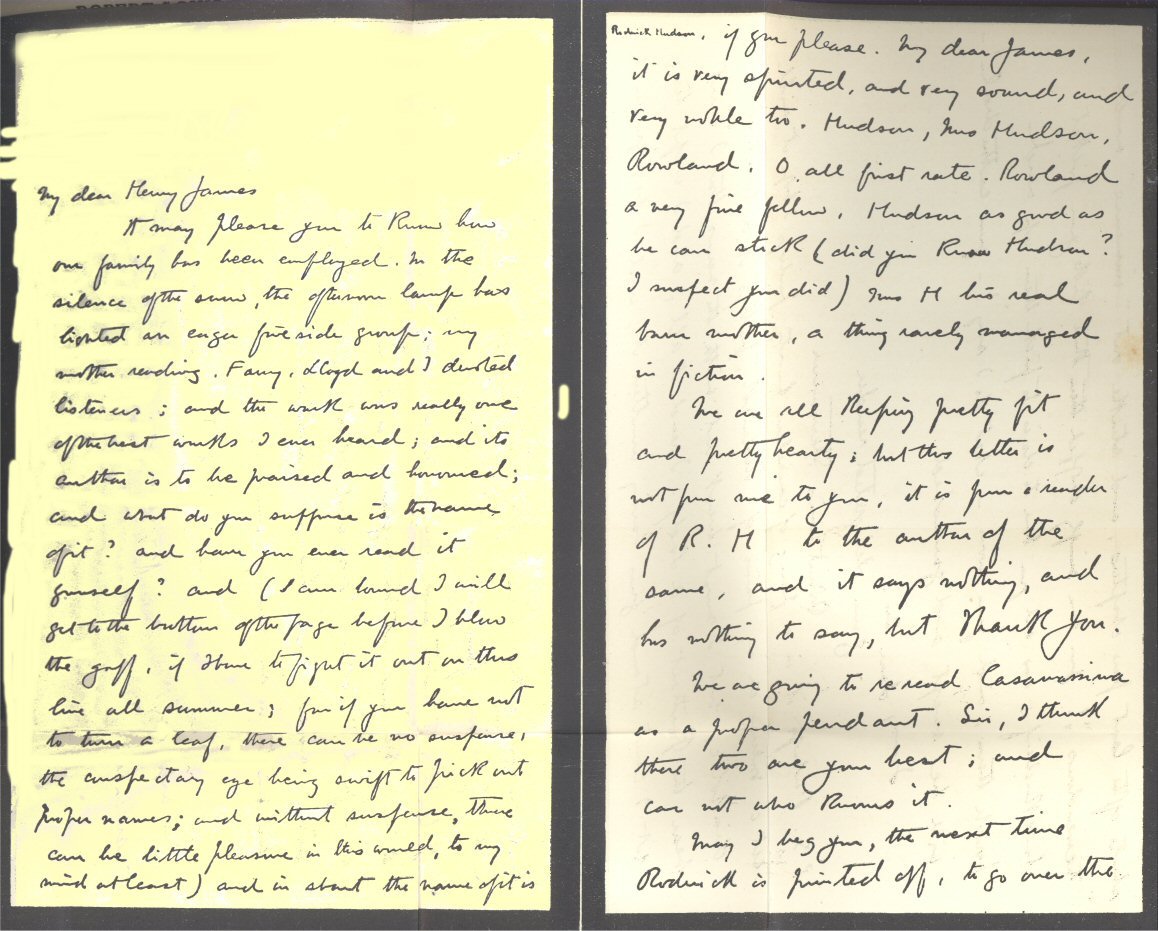 My dear Henry James
It may please you to know how
our family has been employed. In the
silence of the snow, the afternoon lamp has
lighted an eager fireside group; my
mother reading. Fanny, Lloyd and I devoted
listeners; and the work was really one
of the best works I ever heard; and its
author is to be praised and honoured;
and what do you suppose is the name
of it? and have you ever read it
yourself? and (I am bound I will
get to the bottom of the page before I blow
the gaff, if I have to fight it out on this
line all summer; for if you have not
to turn a leaf, there can be no suspense,
the conspectory eye being swift to pick out
proper names; and without suspense, there
can be little pleasure in this world, to my
mind at least) and in short the name of it is
Roderick Hudson, if you please. My dear James,
it is very spirited, and very sound, and
very noble too. Hudson, Mrs Hudson,
Rowland. O, all first rate. Rowland
a very fine fellow, Hudson as good as
he can stick (did you know Hudson?
I suspect you did) Mrs H his real
born mother, a thing rarely managed
in fiction.
We are all keeping pretty fit
and pretty hearty; but this letter is
not from me to you, it is from a reader
of R. H to the author of the
same, and it says nothing, and
has nothing to say, but Thank You.
We are going to re read Casamassima
as a proper pendant. Sir, I think
these two are your best; and
care not who knows it.
May I beg you, the next time
Roderick is printed off, to go over the